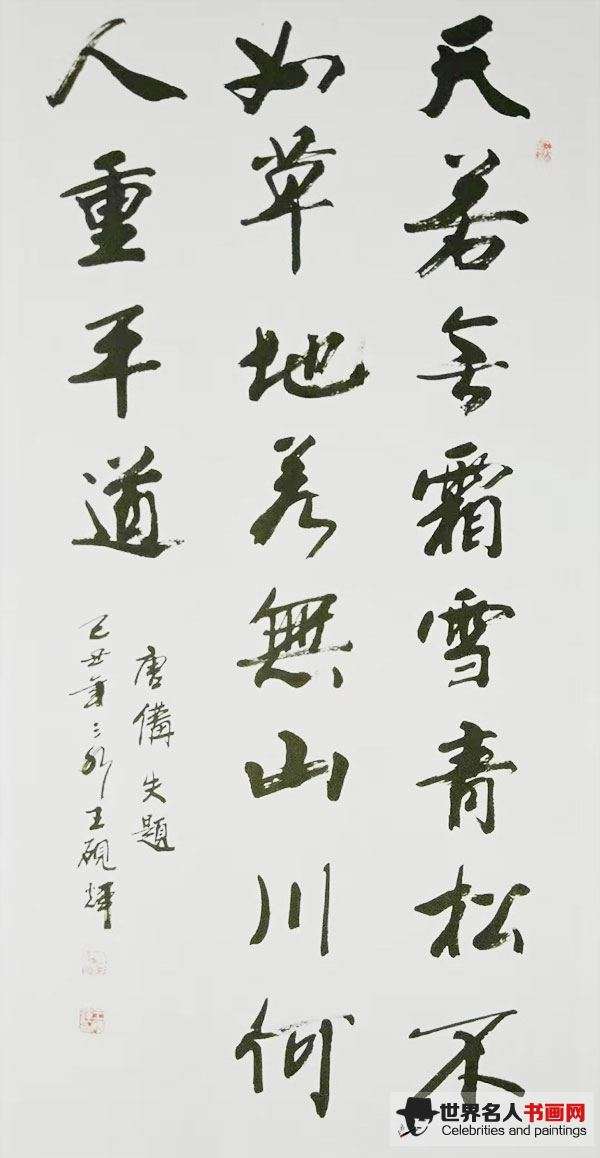 天若無霜雪青松不
如草地若無山川何
人重平道
唐備失題
己丑年三秋王硯輝
世界名人书画网
Celebrities and paintings